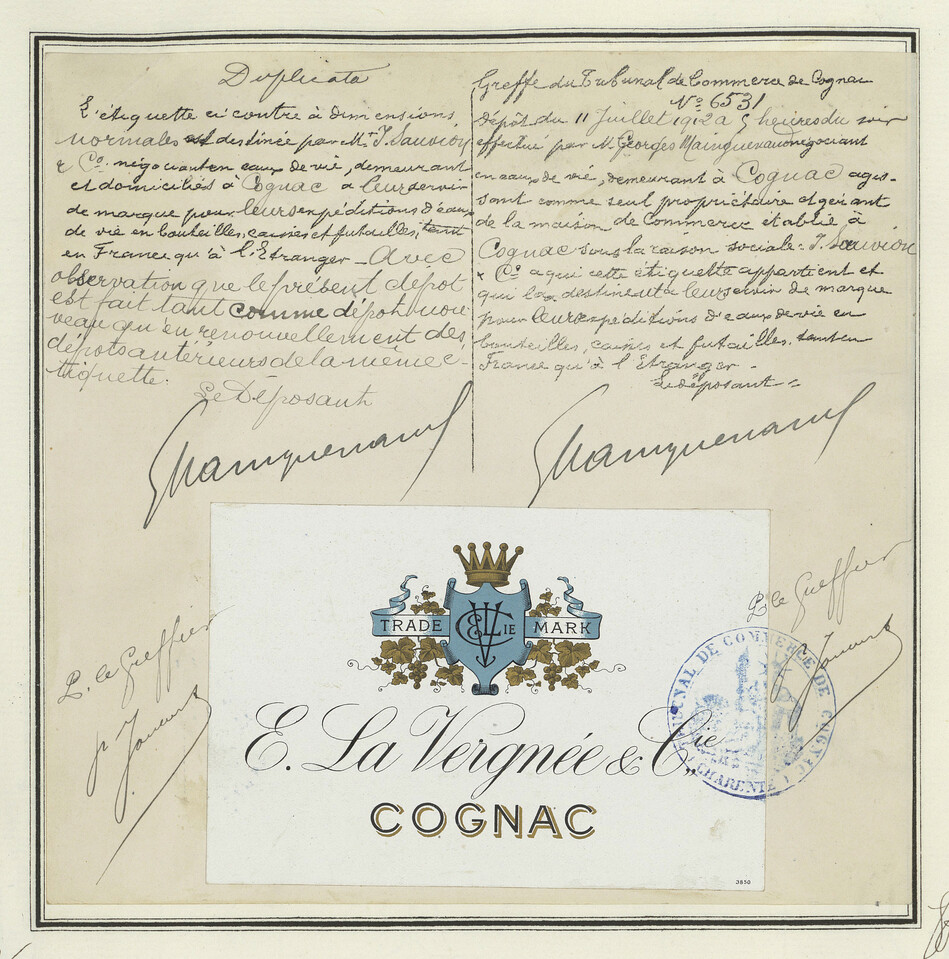 Duplicata
L'étiquette ci contre à dimensions
normales est destinée par Mr J. Sauvion
& Co. négociant en eaux de vie, demeurant
et domiciliés à Cognac a leur servir
de marque pour leurs expéditions d'eaux
de vie en bouteilles, caisses et futailles, tant
en France qu'à l'Etranger - Avec
observation que le présent dépot
est fait tant comme dépot nou-
veau qu'en renouvellement des
dépots antérieurs de la même é-
tiquette.
Le Déposant
GMainguenaud
Greffe du Tribunal de Commerce de Cognac
No 6531
Dépôt du 11 Juillet 1912 à 5 heures du soir
effectué par M. Georges Mainguenaud négociant
en eaux de vie, demeurant à Cognac agis-
sant comme seul propriétaire et gérant
de la maison de Commerce établie à
Cognac sous la raison sociale: J. Sauvion
& Co a qui cette étiquette appartient et
qui la destinent à leur servir de marque
pour leurs expéditions d'eaux de vie en
bouteilles, caisses et futailles tant en
France qu'à l'Etranger -
Le déposant =
GMainguenaud
TRADE ECVL IE MARK
E. La Vergnée & Cie
COGNAC
3850
P. le Greffier
P. le Greffier
TRIBUNAL DE COMMERCE DE COGNAC
CHARENTE